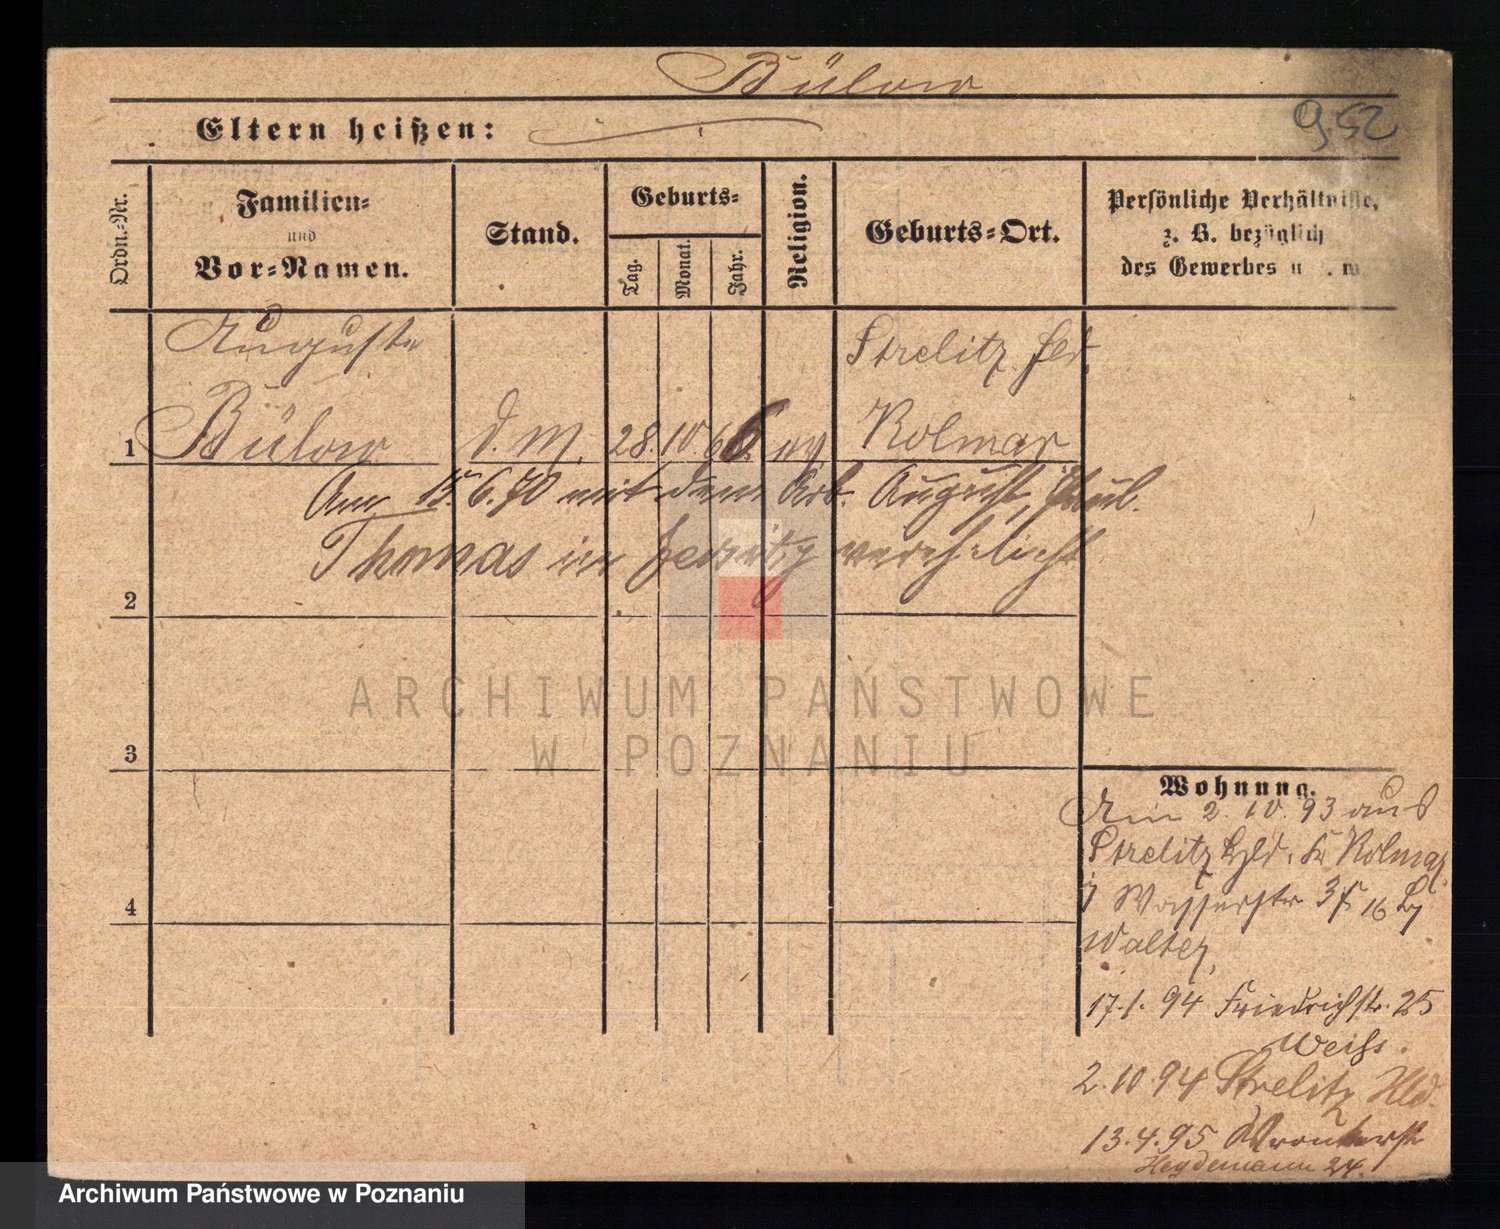 Bülow
952
Eltern heißen:
Ordn.-Nr.
Familien-
und
Vor-Namen.
Stand.
Geburts-
Tag.
Monat.
Jahr.
Religion.
Geburts-Ort.
Persönliche Verhältnisse,
z. B. bezüglich
des Gewerbes u. s. w.
Auguste
Strelitz Hld.
1 Bülow d. M. 28. 10. 66. ev Kolmar
Am 15. 6. 70 mit dem Arb. August, Paul.
Thomas in Jersitz verehelicht
2
3
4
Wohnung.
Am 2. 10. 93 aus
Strelitz Hld. Kr Kolmar
Wasserstr 16 By
Walter,
17. 1. 94 Friedrichstr. 25
Weiss.
2. 10. 94 Strelitz Hld.
13. 4. 95 Wronkerstr
Heydemann 24.
ARCHIWUM PAŃSTWOWE
W POZNANIU
Archiwum Państwowe w Poznaniu